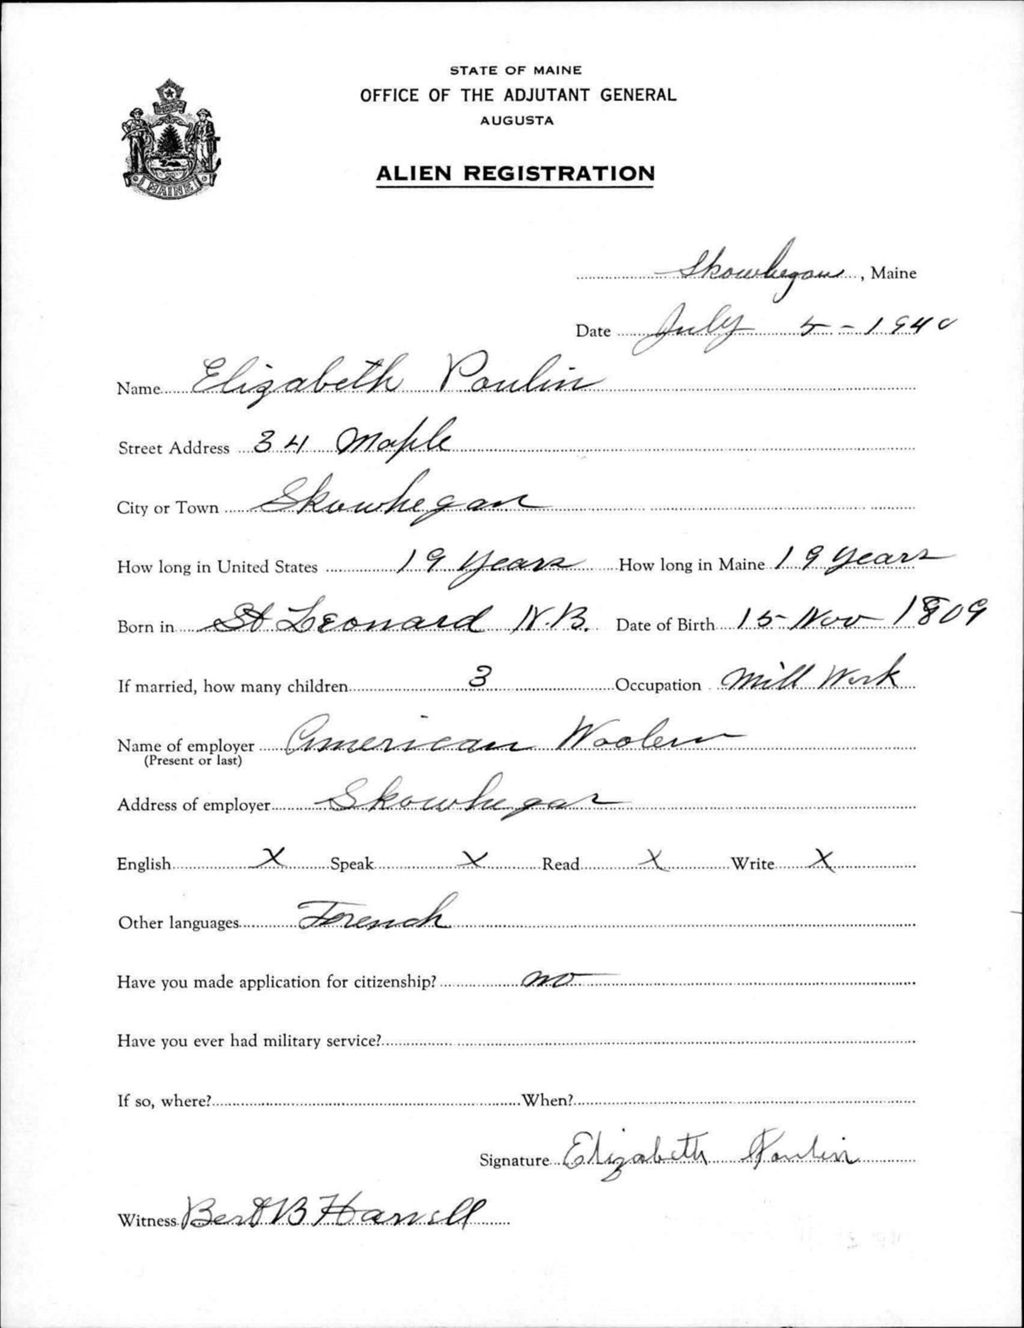 STATE OF MAINE
OFFICE OF THE ADJUTANT GENERAL
AUGUSTA
ALIEN REGISTRATION
MAINE
Skowhegan, Maine
Date July 5 - 1940
Name Elizabeth Poulin
Street Address 34 Maple
City or Town Skowhegan
How long in United States 19 years How long in Maine 19 years
Born in St Leonard N.B. Date of Birth 15 Nov 1909
If married, how many children 3 Occupation Mill Work
Name of employer American Woolen
(Present or last)
Address of employer Skowhegan
English X Speak X Read X Write X
Other languages French
Have you made application for citizenship? no
Have you ever had military service?
If so, where? When?
Signature Elizabeth Poulin
Witness Bert B